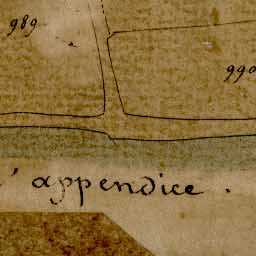 989
990
l'appendice.